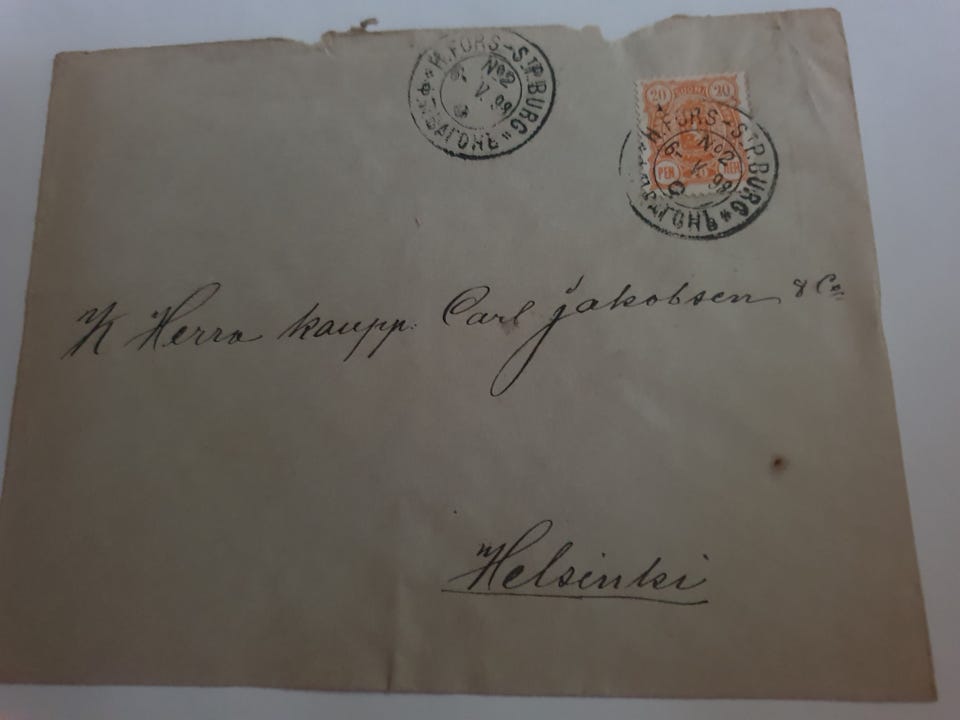 H.FORS - ST.P.BURG
No 2
9. V. 98
Ф. П. ВАГОНЪ
20 SUOMI 20
PEN
H.FORS - ST.P.BURG
No 2
9. V. 98
ВАГОНЪ
Herra kaupp. Carl Jakobsen & Co
Helsinki